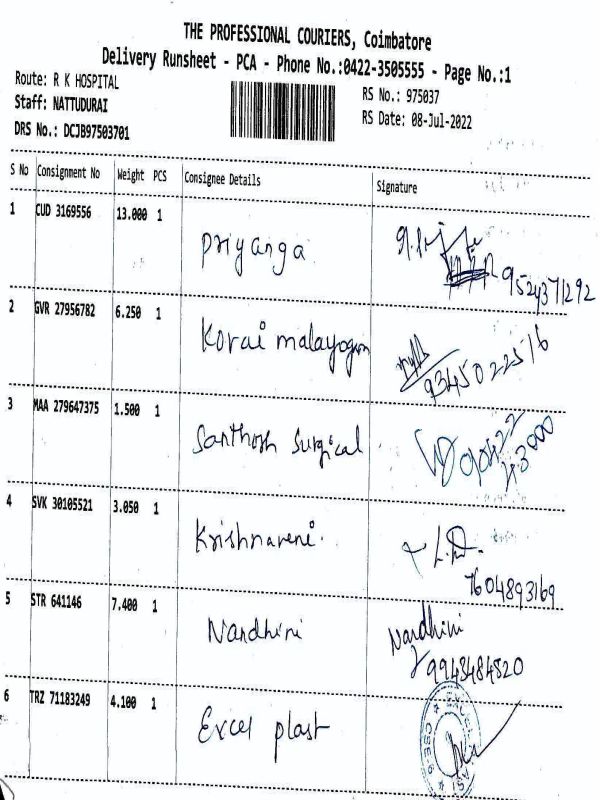 THE PROFESSIONAL COURIERS, Coimbatore
Delivery Runsheet - PCA - Phone No.:0422-3505555 - Page No.:1
Route: R K HOSPITAL
RS No.: 975037
Staff: NATTUDURAI
RS Date: 08-Jul-2022
DRS No.: DCJB97503701
S No Consignment No Weight PCS Consignee Details Signature
1 CUD 3169556 13.000 1 Priyanga
9524371292
2 GVR 27956782 6.250 1 Kovai malayogam
9345022516
3 MAA 279647375 1.500 1 Santhosh Surgical
4 SVK 30105521 3.050 1 Krishnaveni.
7604893169
5 STR 641146 7.400 1 Nandhini Nandhini
9943484820
6 TRZ 71183249 4.100 1 Excel plast